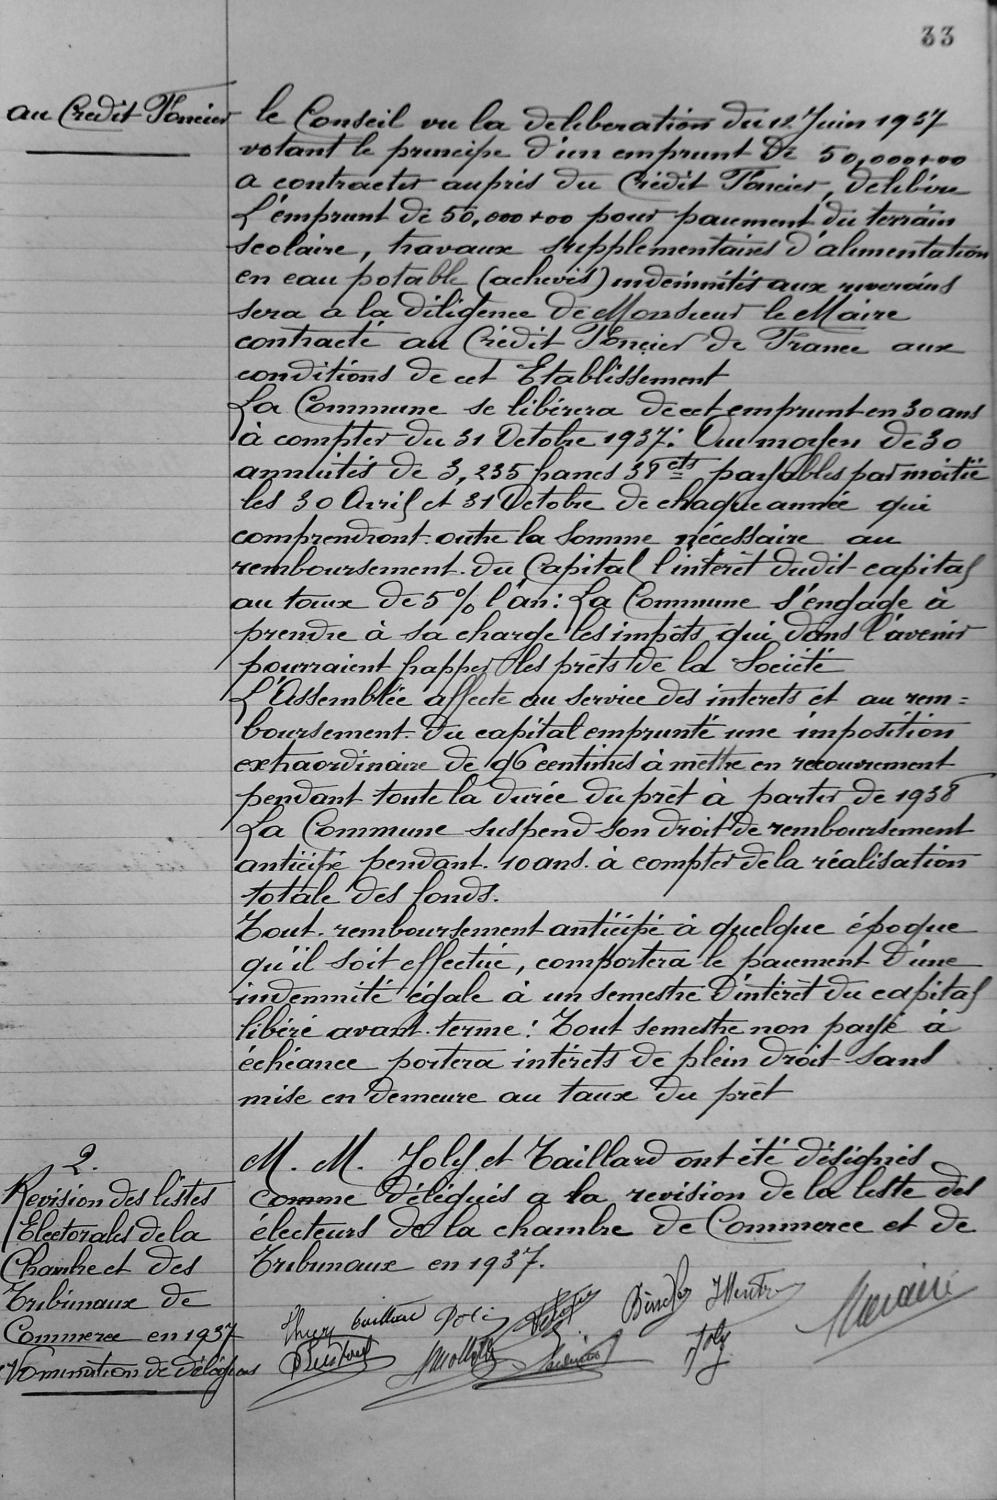 33
au Crédit Foncier
le Conseil vu la deliberation du 12 Juin 1937
votant le principe d'un emprunt de 50,000+00
a contracter auprès du Crédit Foncier, délibère
L'emprunt de 50,000+00 pour paiement du terrain
scolaire, travaux supplementaires d'alimentation
en eau potable (achevés) indemnités aux riverains
sera a la diligence de Monsieur le Maire
contracté au Crédit Foncier de France aux
conditions de cet Etablissement
La Commune se libérera de cet emprunt en 30 ans
à compter du 31 Octobre 1937: Au moyen de 30
annuités de 3,235 francs 38 cts payables par moitié
les 30 Avril et 31 Octobre de chaque année qui
comprendront outre la somme nécessaire au
remboursement du Capital l'intérêt dudit capital
au taux de 5% l'an: La Commune s'engage à
prendre à sa charge les impôts qui dans l'avenir
pourraient frapper les prêts de la Société
L'Assemblée affecte au service des interets et au rem=
boursement du capital emprunté une imposition
extraordinaire de 96 centimes à mettre en recouvrement
pendant toute la durée du prêt à partir de 1938
La Commune suspend son droit de remboursement
anticipé pendant 10 ans à compter de la réalisation
totale des fonds.
Tout remboursement anticipé à quelque époque
qu'il soit effectué, comportera le paiement d'une
indemnité égale à un semestre d'intérêt du capital
libéré avant terme: Tout semestre non payé à
échéance portera intérets de plein droit sans
mise en demeure au taux du prêt
2.
Revision des listes
Electorales de la
Chambre et des
Tribunaux de
Commerce en 1937
Nomination de délégués
M. M. Joly et Taillard ont été désignés
comme délégués a la revision de la liste des
électeurs de la chambre de Commerce et de
Tribunaux en 1937.
Joly